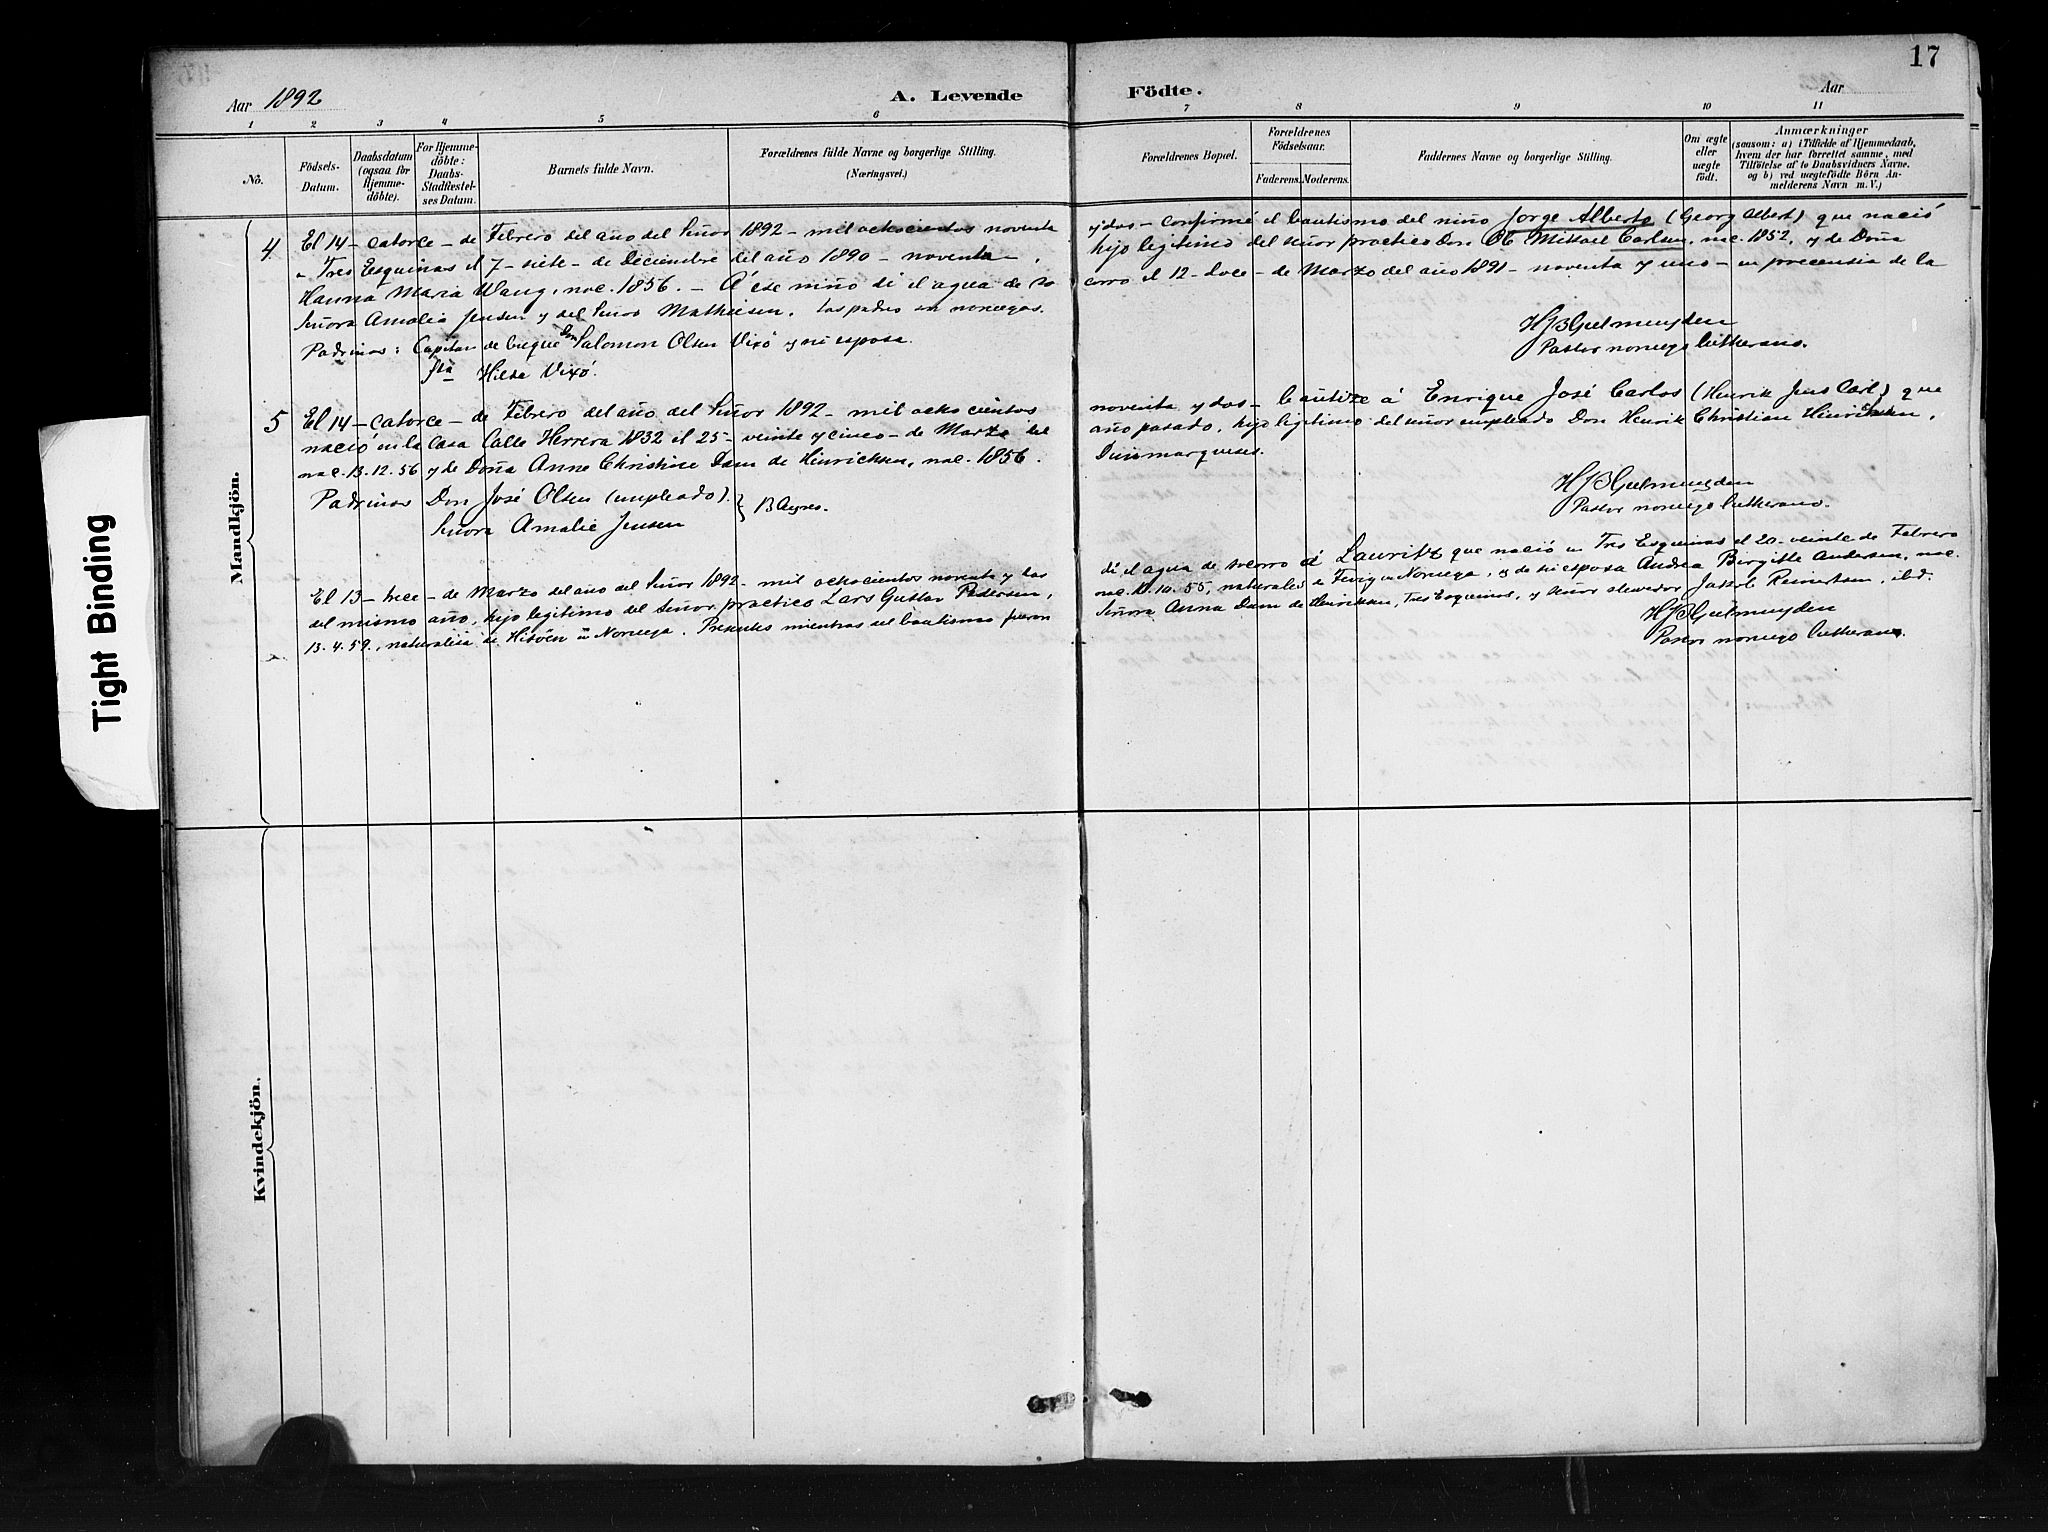 17
Aar 1892
A. Levende Födte.
Aar
1 2 3 4 5 6 7 8 9 10 11
No.
Födsels-Datum.
Daabsdatum (ogsaa for Hjemme-döbte).
For Hjemme-döbte: Daabs-Stadfæstel-ses Datum.
Barnets fulde Navn.
Forældrenes fulde Navne og borgerlige Stilling. (Næringsvei.)
Forældrenes Bopæl.
Forældrenes Födselsaar.
Faderens. Moderens.
Faddernes Navne og borgerlige Stilling.
Om ægte eller uægte födt.
Anmærkninger (saasom: a) i Tilfælde af Hjemmedaab, hvem der har forrettet samme, med Tilföielse af to Daabsvidners Navne. og b) ved uægtefödte Börn An-melderens Navn m. V.)
Mandkjön.
4 El 14 - catorce - de Febrero del año del Señor 1892 - mil ochocientos noventa y dos - confirmé el bautismo del niño Jorge Alberto (Georg Albert) que nació
Tres Esquinas el 7 - siete - de Diciembre del año 1890 - noventa, hijo legitimo del señor practico Don Ole Mikael Carlsen, nac. 1852, y de Doña
Hanna Maria Wang, nac. 1856. - Á este niño di el agua de so corro el 12 - doce - de Marzo del año 1891 - noventa y uno - en precensia de la
Señora Amalia Jensen y del Señor Mathiesen. Los padres son noruegos.
Padrinos: Capitan de buque Salomon Olsen Vixó y su esposa
Hilda Vixó.
HJBGuelmuyden
Pastor noruego lutherano.
5 El 14 - catorce - de Febrero del año del Señor 1892 - mil ochocientos noventa y dos - bautize á Enrique José Carlos (Henrik Jens Carl) que
nació en la casa Calle Herrera 1832 el 25 - veinte y cinco - de Marzo del año pasado, hijo legitimo del señor empleado Don Henrik Christian Hinricksen,
nac. 13.12.56 y de Doña Anne Christine Dam de Hinricksen, nac. 1856. Dinamarqueses.
Padrinos Don José Olsen (empleado).
Señora Amalie Jensen } B Ayres.
HJBGuelmuyden
Pastor noruego lutherano.
El 13 - trece - de Marzo del año del Señor 1892 - mil ochocientos noventa y dos di el agua de socorro á Lauritz que nació en Tres Esquinas el 20 - veinte de Febrero
del mismo año, hijo legitimo del Señor practico Lars Gustav Pedersen, nac. 10.10.55, naturales de en Noruega, y de su esposa Andrea Birgitte Andersen, nac.
13.4.59, naturales de Hitöen en Noruega. Presentes mientras del bautismo fueron Señora Anna Dam de Henriksen, Tres Esquinas, y señor stevedor Jakob Reinertsen, ibd.
HJBGuelmuyden
Pastor noruego lutherano.
Kvindekjön.
Tight Binding